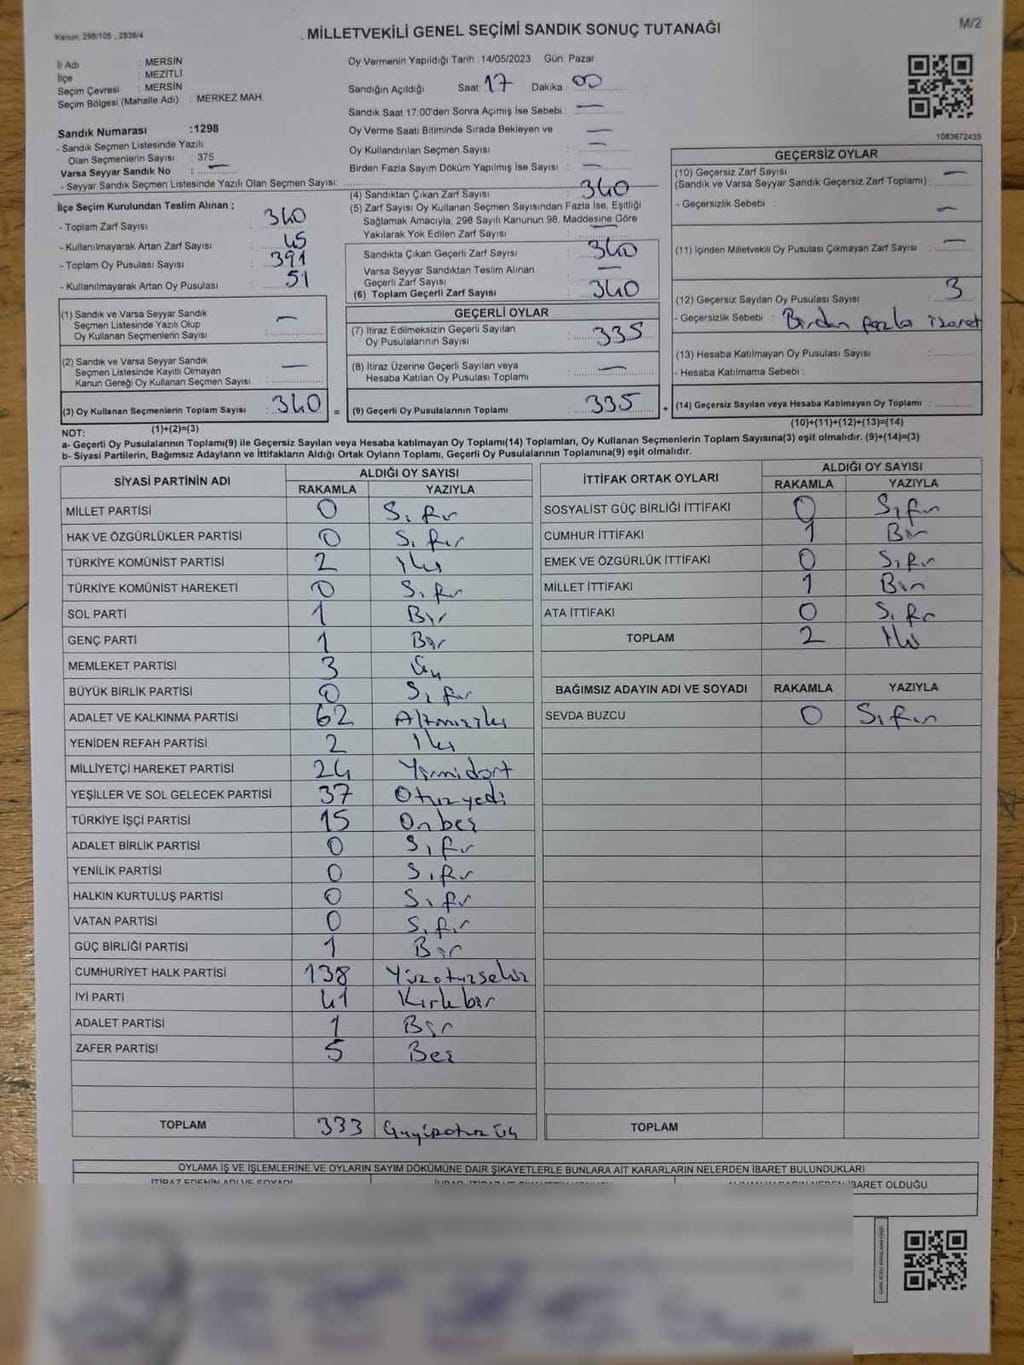 Kanun: 298/105 , 2839/4
MİLLETVEKİLİ GENEL SEÇİMİ SANDIK SONUÇ TUTANAĞI
M/2
İl Adı : MERSİN
İlçe : MEZİTLİ
Seçim Çevresi : MERSİN
Seçim Bölgesi (Mahalle Adı) : MERKEZ MAH.
Oy Vermenin Yapıldığı Tarih :14/05/2023 Gün: Pazar
Sandığın Açıldığı Saat: 17 Dakika 00
Sandık Saat 17:00'den Sonra Açımış İse Sebebi : —
Oy Verme Saati Bitiminde Sırada Bekleyen ve —
Oy Kullandırılan Seçmen Sayısı : —
Birden Fazla Sayım Döküm Yapılmış İse Sayısı : —
1083672435
Sandık Numarası :1298
- Sandık Seçmen Listesinde Yazılı
Olan Seçmenlerin Sayısı : 375
Varsa Seyyar Sandık No : —
- Seyyar Sandık Seçmen Listesinde Yazılı Olan Seçmen Sayısı:
İlçe Seçim Kurulundan Teslim Alınan ;
- Toplam Zarf Sayısı : 340
- Kullanılmayarak Artan Zarf Sayısı : 45
- Toplam Oy Pusulası Sayısı : 391
- Kullanılmayarak Artan Oy Pusulası : 51
(1) Sandık ve Varsa Seyyar Sandık
Seçmen Listesinde Yazılı Olup
Oy Kullanan Seçmenlerin Sayısı : —
(2) Sandık ve Varsa Seyyar Sandık
Seçmen Listesinde Kayıtlı Olmayan
Kanun Gereği Oy Kullanan Seçmen Sayısı : —
(3) Oy Kullanan Seçmenlerin Toplam Sayısı : 340 =
(1)+(2)=(3)
(4) Sandıktan Çıkan Zarf Sayısı : 340
(5) Zarf Sayısı Oy Kullanan Seçmen Sayısından Fazla İse, Eşitliği
Sağlamak Amacıyla, 298 Sayılı Kanunun 98. Maddesine Göre
Yakılarak Yok Edilen Zarf Sayısı : —
Sandıkta Çıkan Geçerli Zarf Sayısı : 340
Varsa Seyyar Sandıktan Teslim Alınan
Geçerli Zarf Sayısı : —
(6) Toplam Geçerli Zarf Sayısı : 340
GEÇERLİ OYLAR
(7) İtiraz Edilmeksizin Geçerli Sayılan
Oy Pusulalarının Sayısı : 335
(8) İtiraz Üzerine Geçerli Sayılan veya
Hesaba Katılan Oy Pusulası Toplamı : —
(9) Geçerli Oy Pusulalarının Toplamı : 335 +
GEÇERSİZ OYLAR
(10) Geçersiz Zarf Sayısı
(Sandık ve Varsa Seyyar Sandık Geçersiz Zarf Toplamı) : —
- Geçersizlik Sebebi : —
(11) İçinden Milletvekili Oy Pusulası Çıkmayan Zarf Sayısı : —
(12) Geçersiz Sayılan Oy Pusulası Sayısı : 3
- Geçersizlik Sebebi : Birden fazla işaret
(13) Hesaba Katılmayan Oy Pusulası Sayısı :
- Hesaba Katılmama Sebebi :
(14) Geçersiz Sayılan veya Hesaba Katılmayan Oy Toplamı :
(10)+(11)+(12)+(13)=(14)
NOT:
a- Geçerli Oy Pusulalarının Toplamı(9) ile Geçersiz Sayılan veya Hesaba katılmayan Oy Toplamı(14) Toplamları, Oy Kullanan Seçmenlerin Toplam Sayısına(3) eşit olmalıdır. (9)+(14)=(3)
b- Siyasi Partilerin, Bağımsız Adayların ve İttifakların Aldığı Ortak Oyların Toplamı, Geçerli Oy Pusulalarının Toplamına(9) eşit olmalıdır.
SİYASİ PARTİNİN ADI ALDIĞI OY SAYISI
RAKAMLA YAZIYLA
MİLLET PARTİSİ 0 Sıfır
HAK VE ÖZGÜRLÜKLER PARTİSİ 0 Sıfır
TÜRKİYE KOMÜNİST PARTİSİ 2 İki
TÜRKİYE KOMÜNİST HAREKETİ 0 Sıfır
SOL PARTİ 1 Bir
GENÇ PARTİ 1 Bir
MEMLEKET PARTİSİ 3 Üç
BÜYÜK BİRLİK PARTİSİ 0 Sıfır
ADALET VE KALKINMA PARTİSİ 62 Altmışiki
YENİDEN REFAH PARTİSİ 2 İki
MİLLİYETÇİ HAREKET PARTİSİ 24 Yirmidört
YEŞİLLER VE SOL GELECEK PARTİSİ 37 Otuzyedi
TÜRKİYE İŞÇİ PARTİSİ 15 Onbeş
ADALET BİRLİK PARTİSİ 0 Sıfır
YENİLİK PARTİSİ 0 Sıfır
HALKIN KURTULUŞ PARTİSİ 0 Sıfır
VATAN PARTİSİ 0 Sıfır
GÜÇ BİRLİĞİ PARTİSİ 1 Bir
CUMHURİYET HALK PARTİSİ 138 Yüzotuzsekiz
İYİ PARTİ 41 Kırkbir
ADALET PARTİSİ 1 Bir
ZAFER PARTİSİ 5 Beş
TOPLAM 333 Üçyüzotuzüç
İTTİFAK ORTAK OYLARI ALDIĞI OY SAYISI
RAKAMLA YAZIYLA
SOSYALİST GÜÇ BİRLİĞİ İTTİFAKI 0 Sıfır
CUMHUR İTTİFAKI 1 Bir
EMEK VE ÖZGÜRLÜK İTTİFAKI 0 Sıfır
MİLLET İTTİFAKI 1 Bir
ATA İTTİFAKI 0 Sıfır
TOPLAM 2 İki
BAĞIMSIZ ADAYIN ADI VE SOYADI RAKAMLA YAZIYLA
SEVDA BUZCU 0 Sıfır
TOPLAM
OYLAMA İŞ VE İŞLEMLERİNE VE OYLARIN SAYIM DÖKÜMÜNE DAİR ŞİKAYETLERLE BUNLARA AİT KARARLARIN NELERDEN İBARET BULUNDUKLARI
İTİRAZ EDENİN ADI VE SOYADI
İBARET OLDUĞU